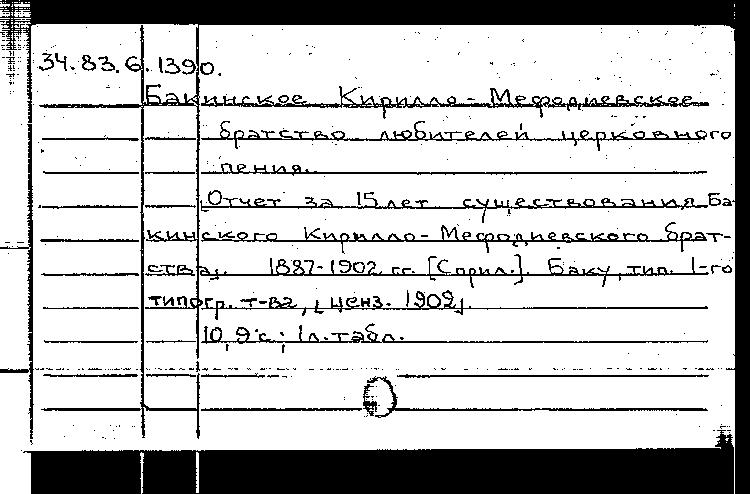 34.83.6.1390.
Бакинское Кирилло-Мефодиевское
братство любителей церковного
пения.
[Отчет за 15 лет существования Ба-
кинского Кирилло-Мефодиевского брат-
ства]. 1887-1902 гг. [С прил.]. Баку, тип. 1-го
типогр. т-ва, [ценз. 1902]
10, 9 с.; 1 л. табл.